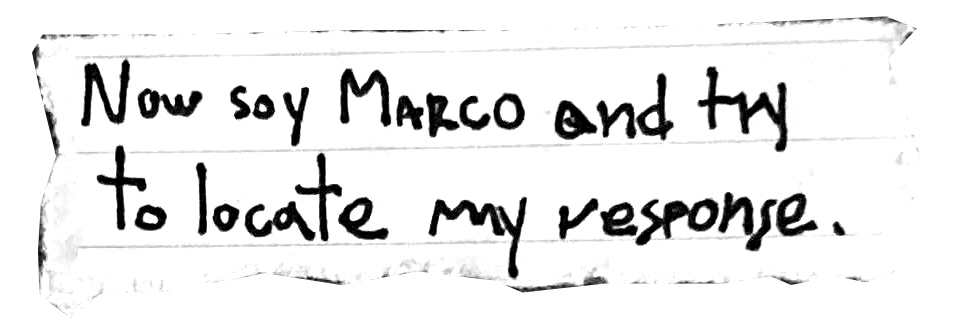 Now say MARCO and try
to locate my response.